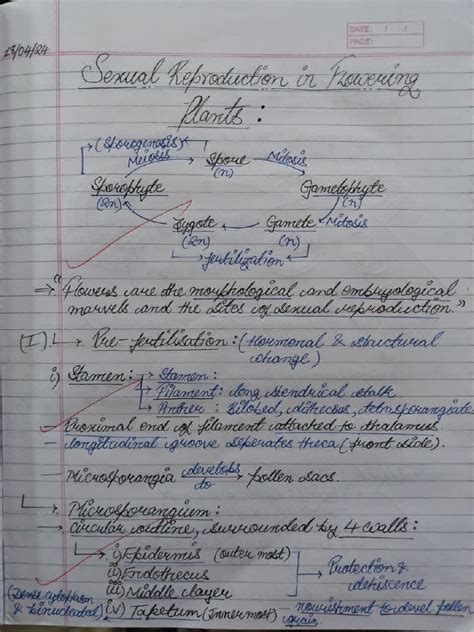 DATE: / /
PAGE:
18/04/24
Sexual Reproduction in Flowering
Plants :
(Sporogenesis)
Meiosis
Spore
(n)
Mitosis
Sporophyte
(2n)
Gametophyte
(n)
Zygote
(2n)
Gamete
(n)
Mitosis
fertilization
→ "Flowers are the morphological and embryological
marvels and the sites of sexual reproduction."
(I) → Pre-fertilisation : (Hormonal & structural
change)
i) Stamen : → Stamen :
→ Filament : long slendrical stalk
→ Anther : Bilobed, dithecous, tetrasporangiate
- Proximal end of filament attached to thalamus.
- longitudinal groove seperates theca (front side).
- Microsporangia develops to → pollen sacs.
→ Microsporangium :
- circular outline, surrounded by 4 walls :
→ i) Epidermis (outer most)
ii) Endothecus
iii) Middle layer
→ Protection &
dehiscence
(Dense cytoplasm
& binucleated)
iv) Tapetum (Inner most) - nourishment to devel pollen
grain.